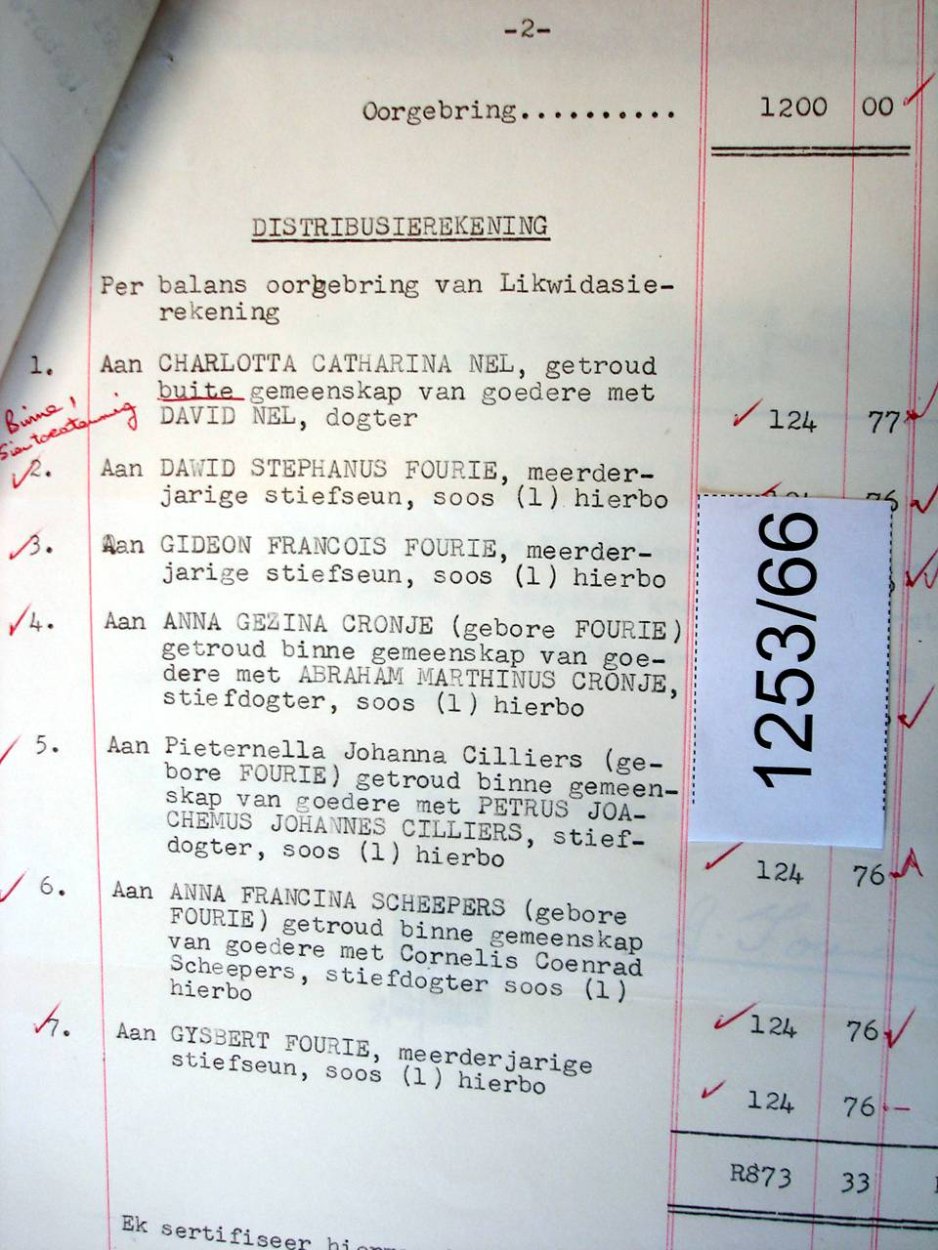 -2-
Oorgebring.......... 1200 00
DISTRIBUSIEREKENING
Per balans oorgebring van Likwidasie-
rekening
1. Aan CHARLOTTA CATHARINA NEL, getroud
buite gemeenskap van goedere met
Binne,
DAVID NEL, dogter 124 77
2. Aan DAWID STEPHANUS FOURIE, meerder-
jarige stiefseun, soos (1) hierbo 76
3. Aan GIDEON FRANCOIS FOURIE, meerder-
jarige stiefseun, soos (1) hierbo
1253/66
4. Aan ANNA GEZINA CRONJE (gebore FOURIE)
getroud binne gemeenskap van goe-
dere met ABRAHAM MARTHINUS CRONJE,
stiefdogter, soos (1) hierbo
5. Aan Pieternella Johanna Cilliers (ge-
bore FOURIE) getroud binne gemeen-
skap van goedere met PETRUS JOA-
CHEMUS JOHANNES CILLIERS, stief-
dogter, soos (1) hierbo 124 76
6. Aan ANNA FRANCINA SCHEEPERS (gebore
FOURIE) getroud binne gemeenskap
van goedere met Cornelis Coenrad
Scheepers, stiefdogter soos (1)
hierbo 124 76
7. Aan GYSBERT FOURIE, meerderjarige
stiefseun, soos (1) hierbo 124 76
R873 33
Ek sertifiseer